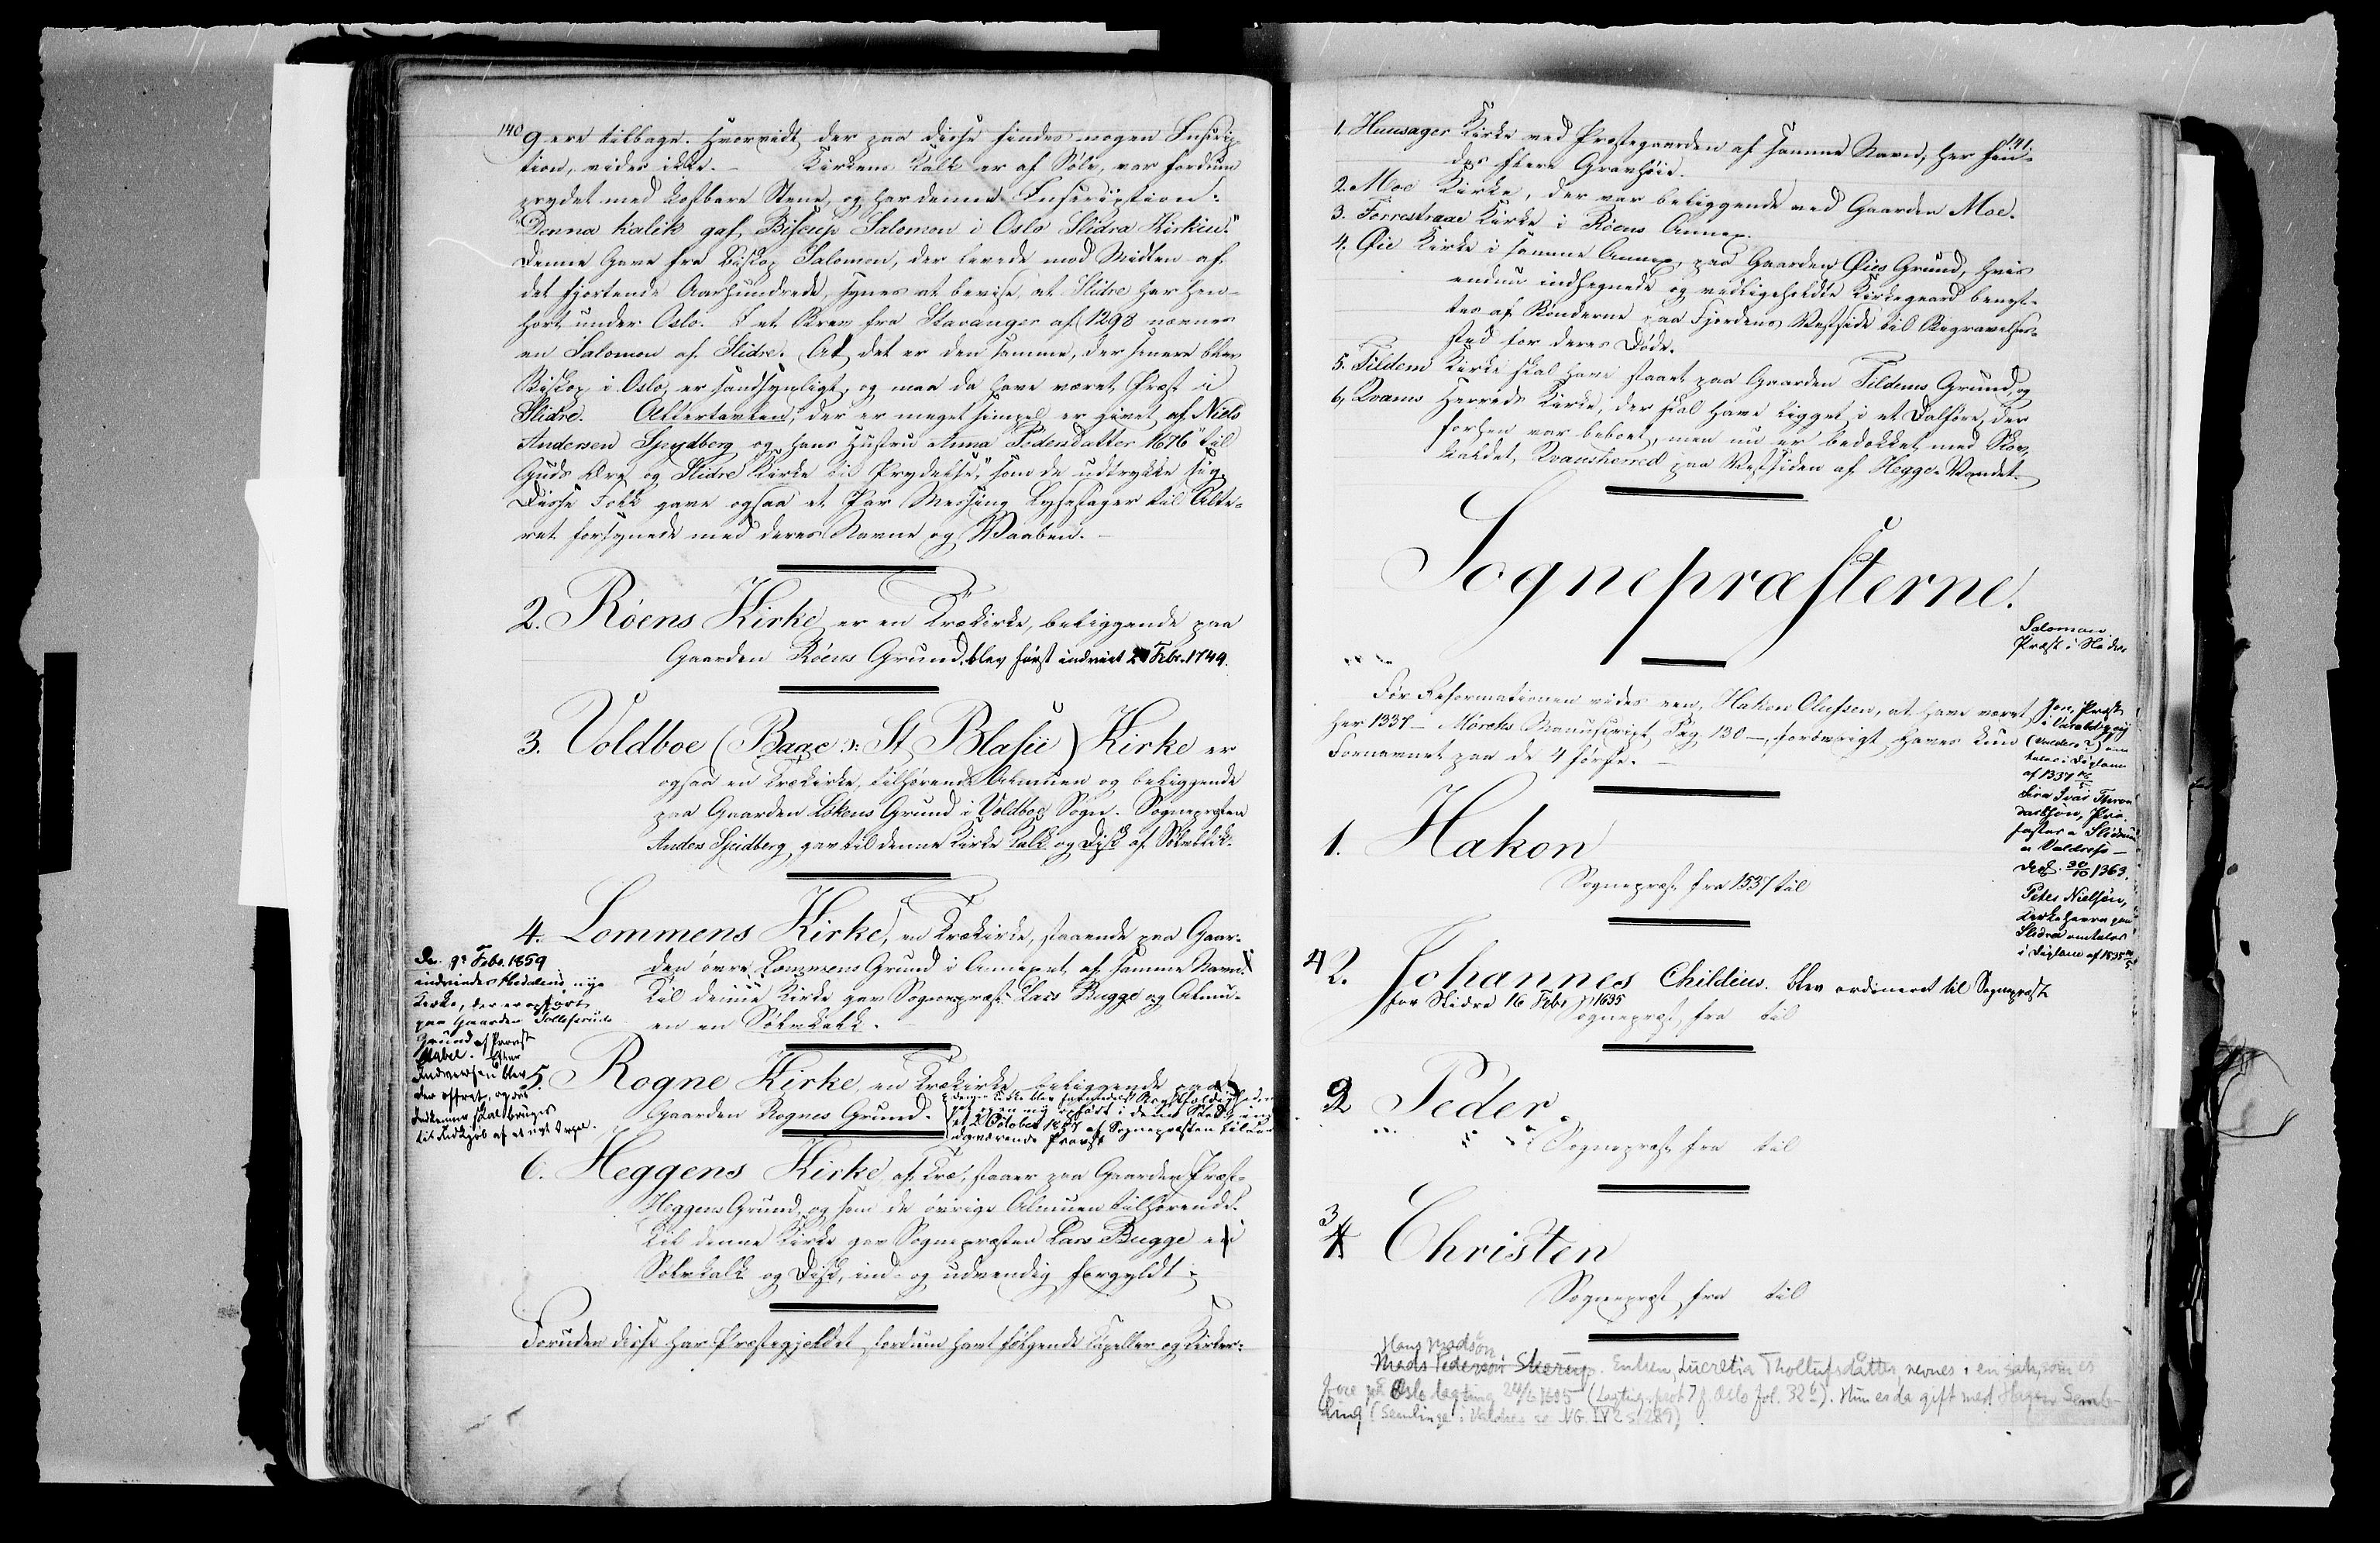 140
9 ere tilbage. Hvorvidt der paa disse findes nogen Inscrip
tion, vides ikke. – Kirkens Kalk er af Sølv, var fordum
prydet med kostbare Stene, og har denne Inscription:
"Denna kalik gaf Biscup Salomon i Oslo Slidra Kirkiu."
Denne Gave fra Biskop Salomon, der levede mod Midten af
det fjortende Aarhundrede, synes at bevise, at Slidre har hen-
hørt under Oslo. I et Brev fra Stavanger af 1298 nævnes
en Salomon af Slidre. At det er den samme, der senere blev
Biskop i Oslo, er sandsynligt, og maa da have været Præst i
Slidre. Altertavlen, der er meget simpel er givet af Niels
Andersen Spydberg og hans Hustru Anna Pedersdatter 1676 "til
Guds Ære og Slidre Kirke til Prydelse," som de udtrykke sig.
Disse Folk gave ogsaa et Par Messing Lysestager til Alte-
ret forsynede med deres Navne og Vaaben. –
2. Røens Kirke er en Trækirke, beliggende paa
Gaarden Røens Grund, blev først indviet 2 Febr. 1749.
3. Voldboe (Bage ɔ: St Blasii) Kirke er
ogsaa en Trækirke, tilhørende Almuen og beliggende
paa Gaarden Løkens Grund i Voldboe Sogn. Sognepræsten
Anders Speidberg gav til denne Kirke Kalk og Disk af Sølvblik.
4. Lommens Kirke, en Trækirke, staaende paa Gaar-
den øvre Lommens Grund i Annexet af samme Navn.
Til denne Kirke gav Sognepræst Lars Bugge og Almu-
en en Sølvkalk.
De 9de Febr. 1859
indviedes nye
Kirke, der er opført
paa Gaarden
Grund af Provst
Stabel. Efter
Indvielsen blev
der ofret, og
skal bruges
til Indkjøb af et nyt Orgel.
5. Rogne Kirke en Trækirke beliggende paa
Gaarden Rognes Grund.
Denne Kirke blev
og en ny opført i dens Sted
2 October 1857 af Sognepræsten
daværende Provst
6. Heggens Kirke af Træ, staaer paa Gaarden Præst-
Heggens Grund, og som de øvrige Almuen tilhørende.
Til denne Kirke gav Sognepræsten Lars Bugge en
Sølvkalk og Disk, ind- og udvendig forgyldt.
Foruden disse har Præstegjeldet fordum havt følgende Kapeller og Kirker:
141.
1. Huusager Kirke ved Præstegaarden af samme Navn, her fin-
des flere Gravhøie.
2. Moe Kirke, der var beliggende ved Gaarden Moe.
3. Førrestraae Kirke i Røens Annex.
4. Øie Kirke i samme Annex, paa Gaarden Øies Grund, hvis
endnu indhegnede og vedligeholdte Kirkegaard benyt-
tes af Bønderne paa Fjordens Vestside til Begravelses-
sted for deres Døde.
5. Tildem Kirke skal have staaet paa Gaarden Tildems Grund, og
6, Qvams Herreds Kirke, der skal have ligget i et Dalføre, der
forhen var beboet, men nu er bedækket med Skov,
kaldet Kvamsherred paa Vestsiden af Hegge-Vandet.
Sognepræsterne.
Salomon
Præst i Slidre
Før Reformationen vides een, Hakon Olufsen, at have været
her 1337 – Mørchs Manuscript Pag. 130 –, forøvrigt haves kun
Fornavnet paa de 4 første. –
Jon, Præst
i
(Valders?) om
tales i Diplom
af 1337
Sira Ivar Thron
darsson, Pro
fastar a Slidrum
a Valdresse –
Dipl. 30/10 1363.
Peter Nielsøn,
Kirkeherre paa
Slidre omtales
i Diplom af 1535
1. Hakon
Sognepræst fra 1537 til
4 2. Johannes Childius. blev ordineret til Sognepræst
for Slidre 16 Febr 1635
Sognepræst fra til
2 Peder.
Sognepræst fra til
3
4 Christen
Sognepræst fra til
Hans Madsøn
Mads Pedersøn Skerup. Enken, Lucretia Thollufsdatter, nevnes i en sak, som er
fore på Oslo lagting 24/6 1605 (Lagting.prot 7 f. Oslo fol. 32 b). Hun er da gift med Hagen Semb-
ling (Semlinge i Valdres se NG. IV 2 s. 289)